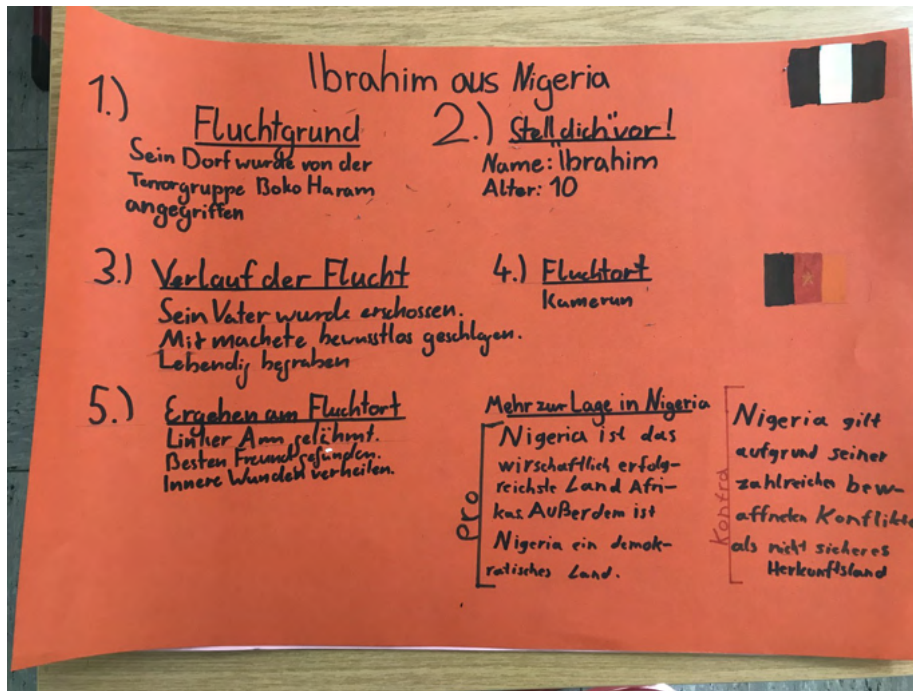 Ibrahim aus Nigeria
1.)
Fluchtgrund
Sein Dorf wurde von der
Terrorgruppe Boko Haram
angegriffen
2.) Stell dich vor!
Name: Ibrahim
Alter: 10
3.) Verlauf der Flucht
Sein Vater wurde erschossen.
Mit machete bewusstlos geschlagen.
Lebendig begraben
4.) Fluchtort
Kamerun
5.) Ergehen am Fluchtort
Linker Arm gelähmt.
Besten Freund gefunden.
Innere Wunden verheilen.
Mehr zur Lage in Nigeria
Pro
Nigeria ist das
wirschaftlich erfolg-
reichste Land Afri-
kas Außerdem ist
Nigeria ein demok-
ratisches Land.
Kontra
Nigeria gilt
aufgrund seiner
zahlreichen bew-
affneten Konflikte
als nicht sicheres
Herkunftsland